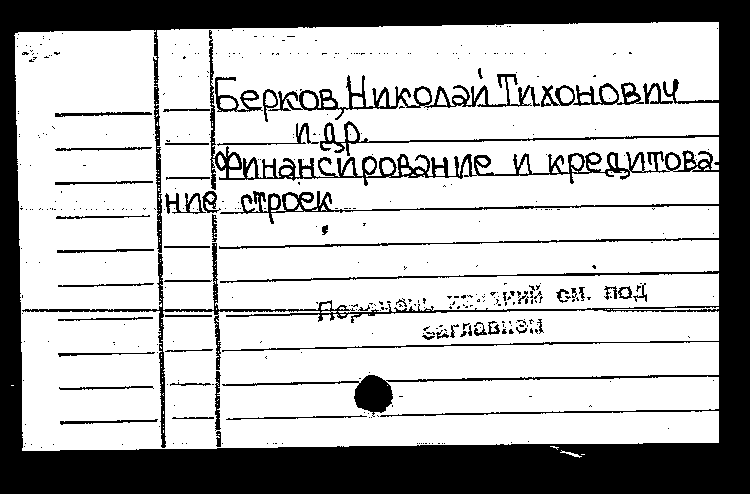 Берков, Николай Тихонович
и др.
Финансирование и кредитова-
ние строек
Перечень изданий см. под
заглавием